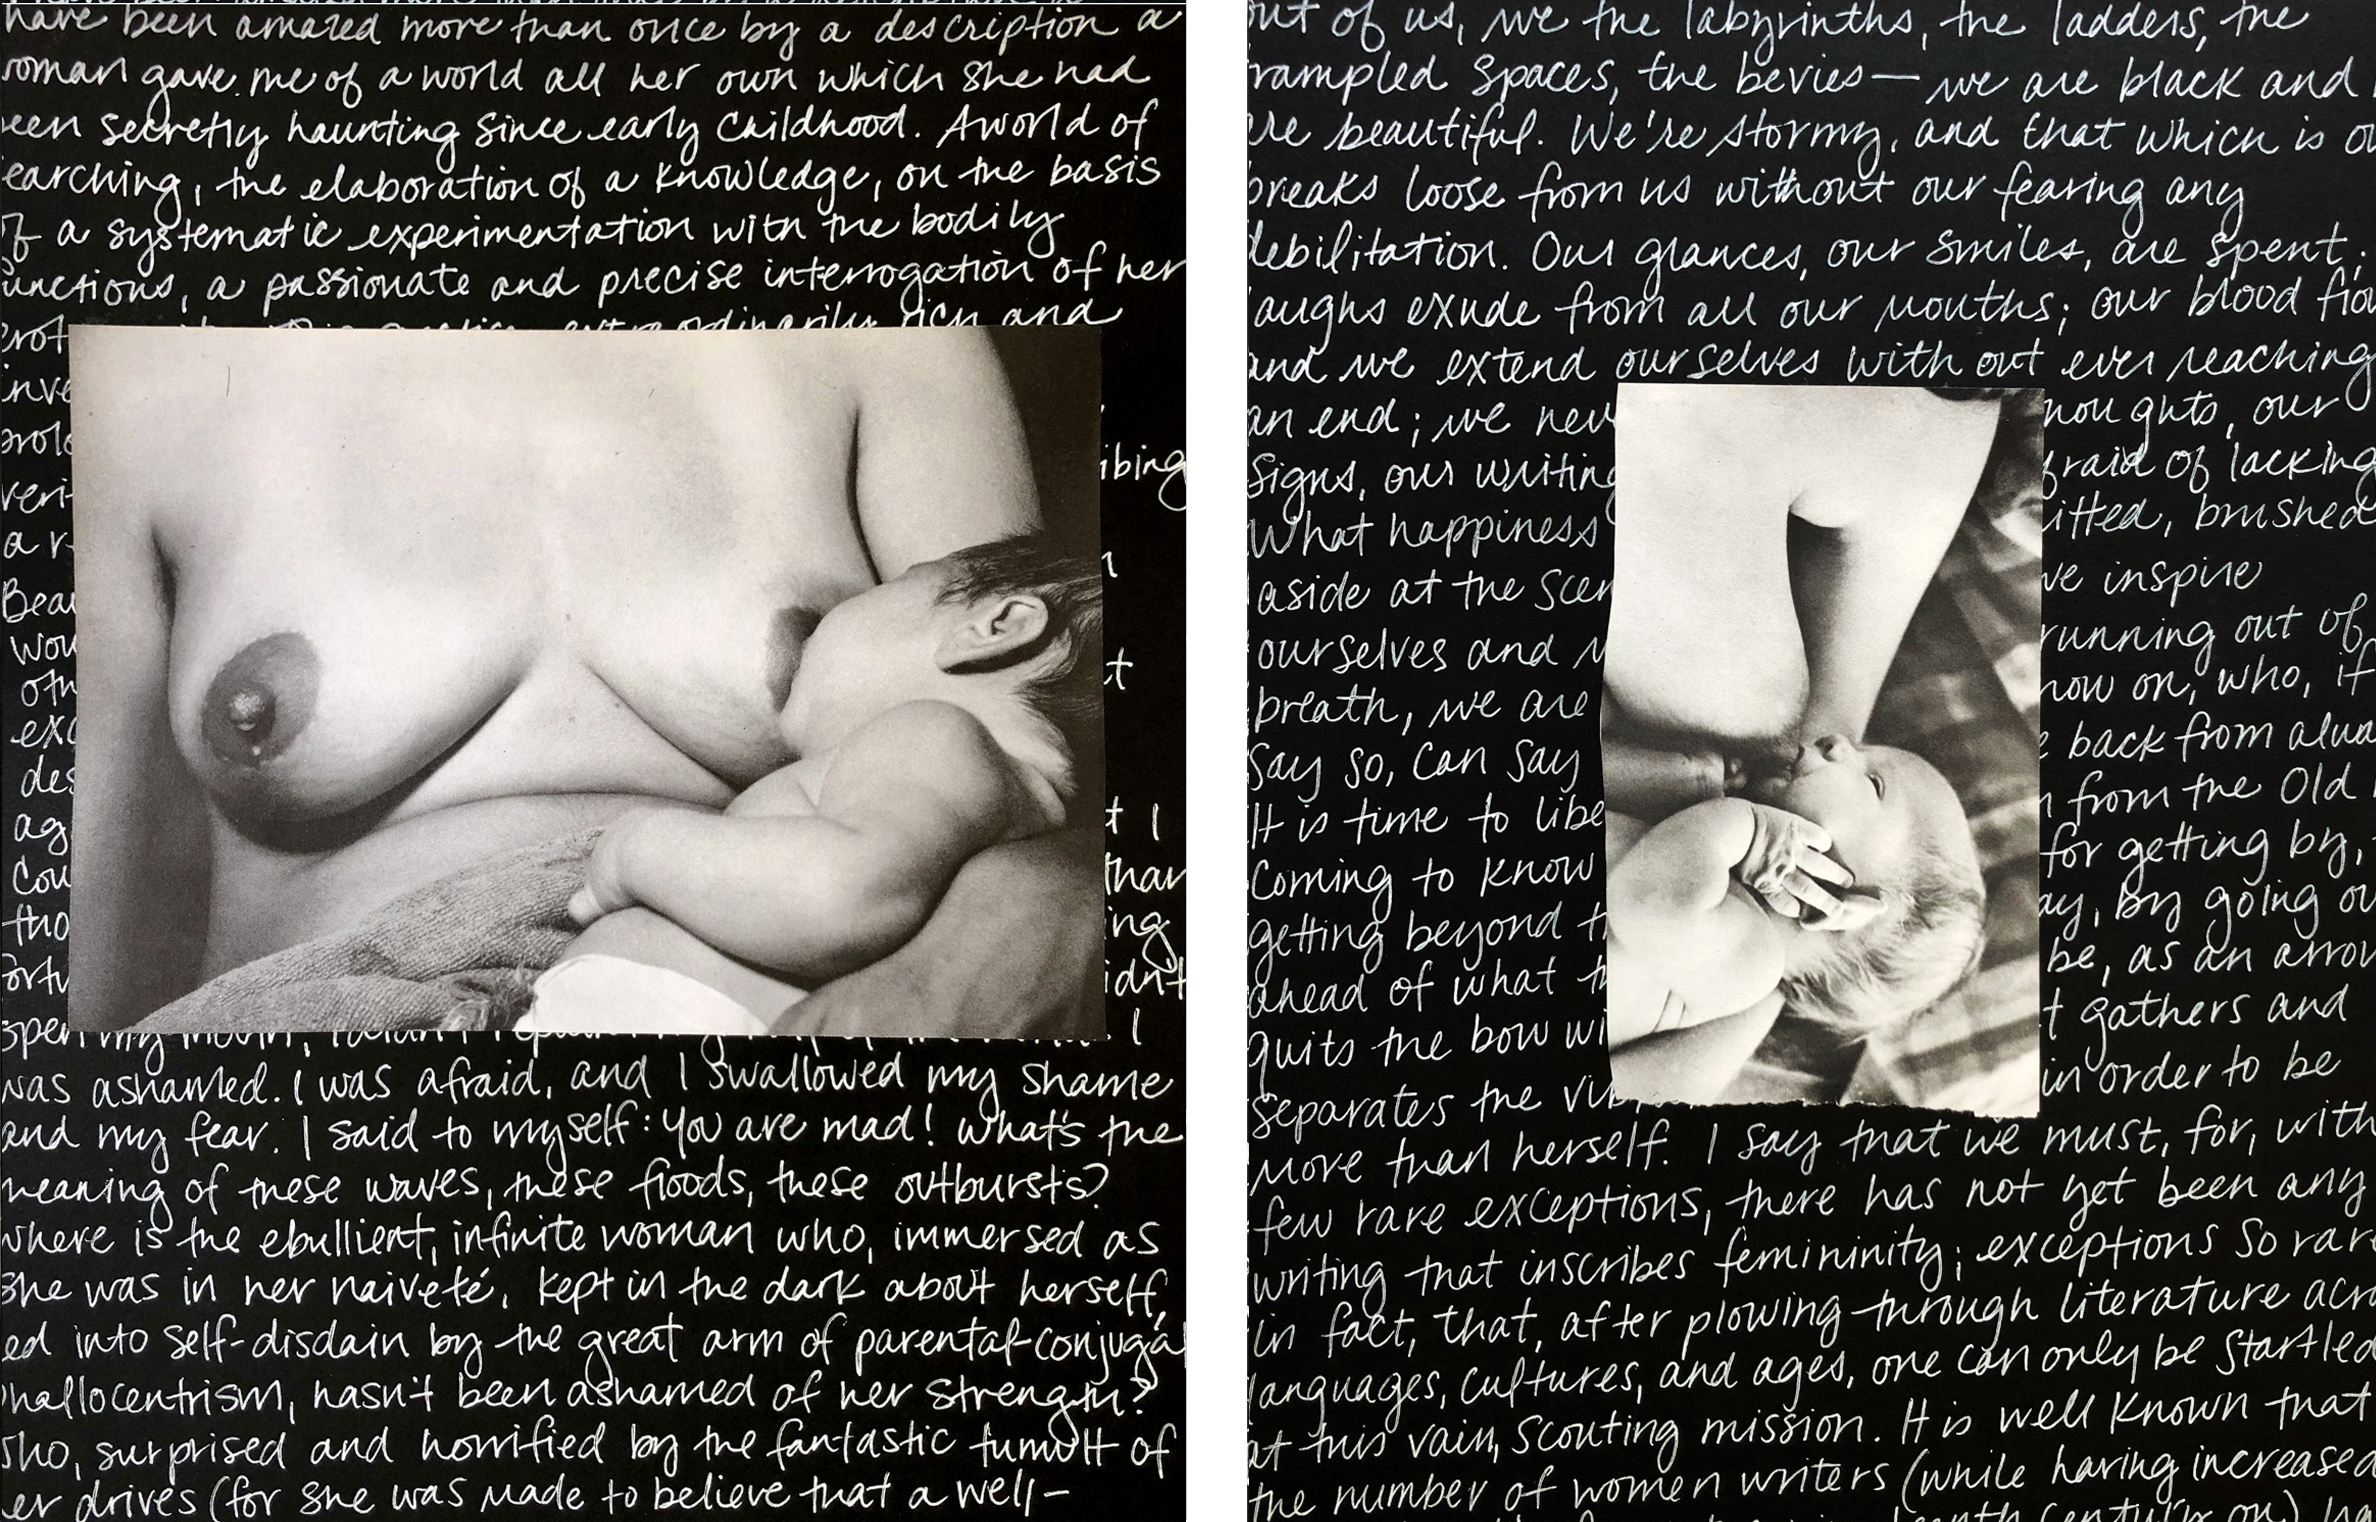 have been amazed more than once by a description a
woman gave me of a world all her own which she had
een secretly haunting since early childhood. A world of
earching, the elaboration of a knowledge, on the basis
of a systematic experimentation with the bodily
unctions, a passionate and precise interrogation of her
erot extraordinarily rich and
inve
prolo ibing
veri
a r
Beau
wou
oth t
exc
des
ag t I
Cou than
tho ing
ortu idn't
open my mouth, I didn't I
was ashamed. I was afraid, and I swallowed my shame
and my fear. I said to myself: You are mad! What's the
meaning of these waves, these floods, these outbursts?
where is the ebullient, infinite woman who, immersed as
she was in her naiveté, kept in the dark about herself,
ed into self-disdain by the great arm of parental-conjugal
hallocentrism, hasn't been ashamed of her strength?
Who, surprised and horrified by the fantastic tumult of
er drives (for she was made to believe that a well-
out of us, we the labyrinths, the ladders, the
rampled spaces, the bevies— we are black and
are beautiful. We're stormy, and that which is ou
breaks loose from us without our fearing any
debilitation. Our glances, our smiles, are spent;
laughs exude from all our mouths; our blood flow
and we extend ourselves without ever reaching
an end; we nev houghts, our
Signs, our writing fraid of lacking
What happiness itted, brushed
aside at the scen we inspire
ourselves and running out of
breath, we are now on, who, if
Say so, can say e back from alwa
It is time to libe from the Old
Coming to know for getting by,
getting beyond t ay, by going ou
ahead of what be, as an arrow
quits the bow wi t gathers and
separates the vi in order to be
more than herself. I say that we must, for, with
few rare exceptions, there has not yet been any
writing that inscribes femininity; exceptions so rare
in fact, that, after plowing through literature acro
languages, cultures, and ages, one can only be startled
at this vain, scouting mission. It is well known that
the number of women writers (while having increased